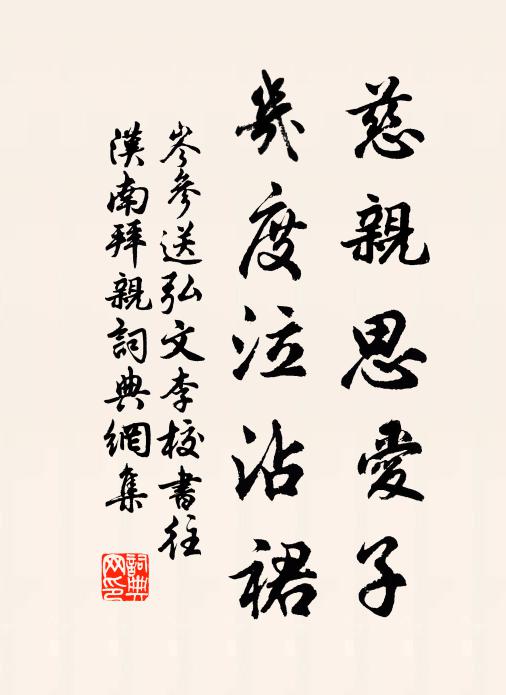 慈親思愛子
幾度泣沾裙
岑參送弘文李校書往
漢南拜親詞典網集
詞典
网印